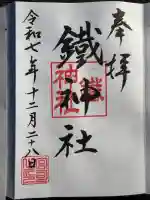 奉拝
鐵神社
令和七年十二月二十八日